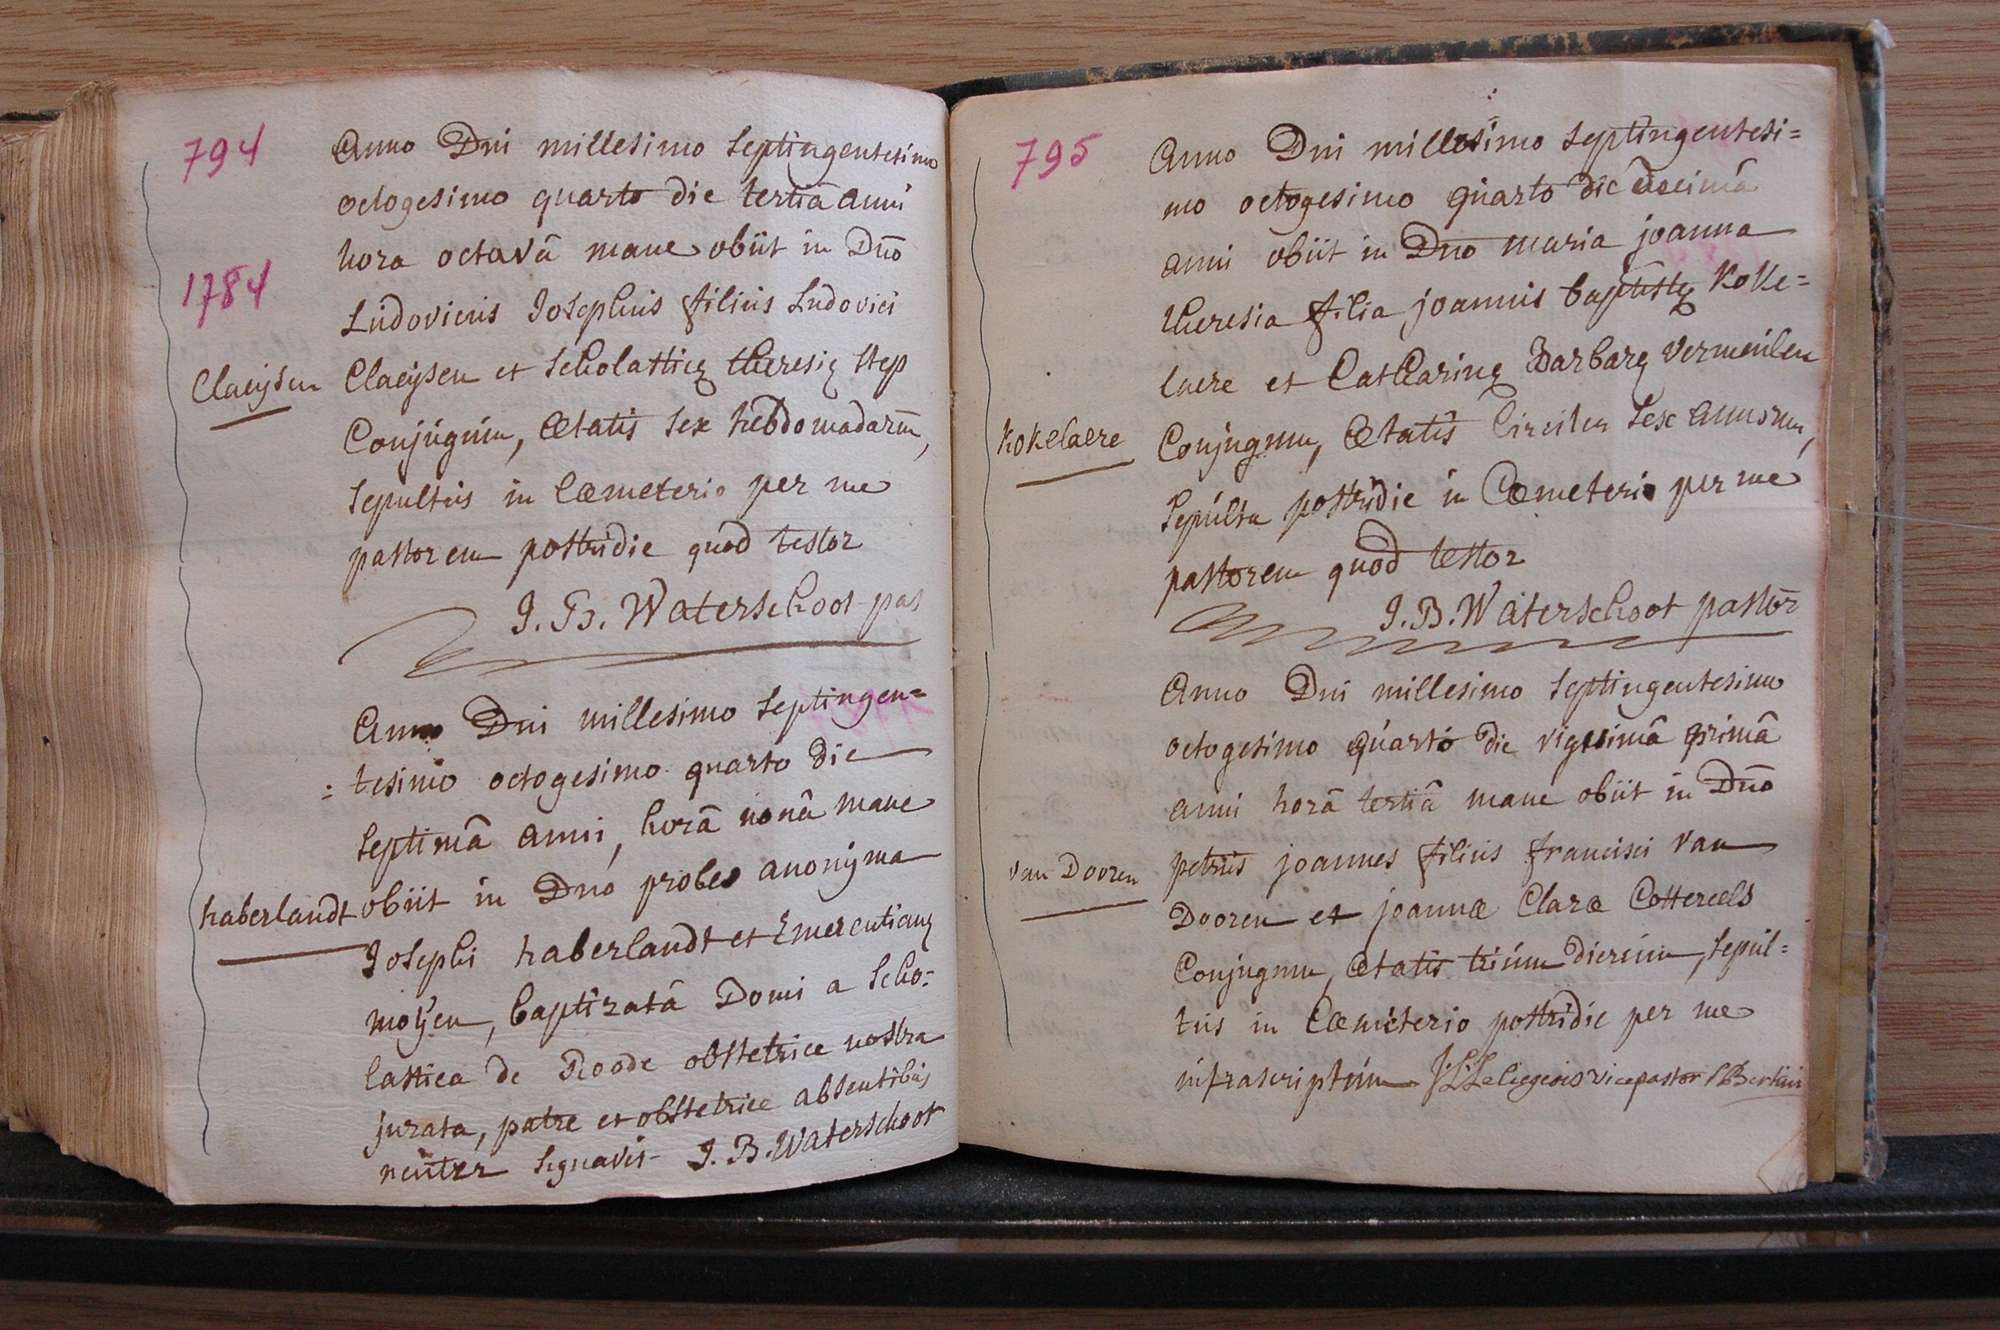 794
1784
Anno Dni millesimo septingentesimo
octogesimo quarto die tertiâ anni
hora octavâ mane obiit in Dnō
Ludovicus Josephus filius Ludovici
Claeijsen
Claeijsen et Scholasticę theresię step
Conjugum, Ætatis sex hebdomadarum,
sepultus in Cæmeterio per me
pastorem postridie quod testor
J. B. Waterschoot pas
Anno Dni millesimo septingen=
=tesimo octogesimo quarto die
septimâ anni, horâ nonâ mane
haberlandt
obiit in Dno proles anonijma
Josephi haberlandt et Emerentianę
moijen, baptizatâ Domi a Scho=
lastica de Roode obstetrice nostra
jurata, patre et obstetrice absentibus
neuter signavit J. B. Waterschoot
795
Anno Dni millesimo septingentesi=
mo octogesimo quarto die decimâ
anni obiit in Dno maria joanna
theresia filia joannis baptistę Koke=
laere et Catharinę Barbarę vermeulen
kokelaere
Conjugum, Ætatis Circiter sex annorum,
sepulta postridie in Cæmeterio per me
pastorem quod testor
J. B. Waterschoot pastor
Anno Dni millesimo septingentesimo
octogesimo quarto die vigesimâ primâ
anni horâ tertiâ mane obiit in Dnō
petrus joannes filius francisci van
van Dooren
Dooren et joannæ Claræ Cottereels
Conjugum, Ætatis trium dierum, sepul=
tus in Cæmeterio postridie per me
infrascriptum J: L: Leliegeois vicepastor S Bertini